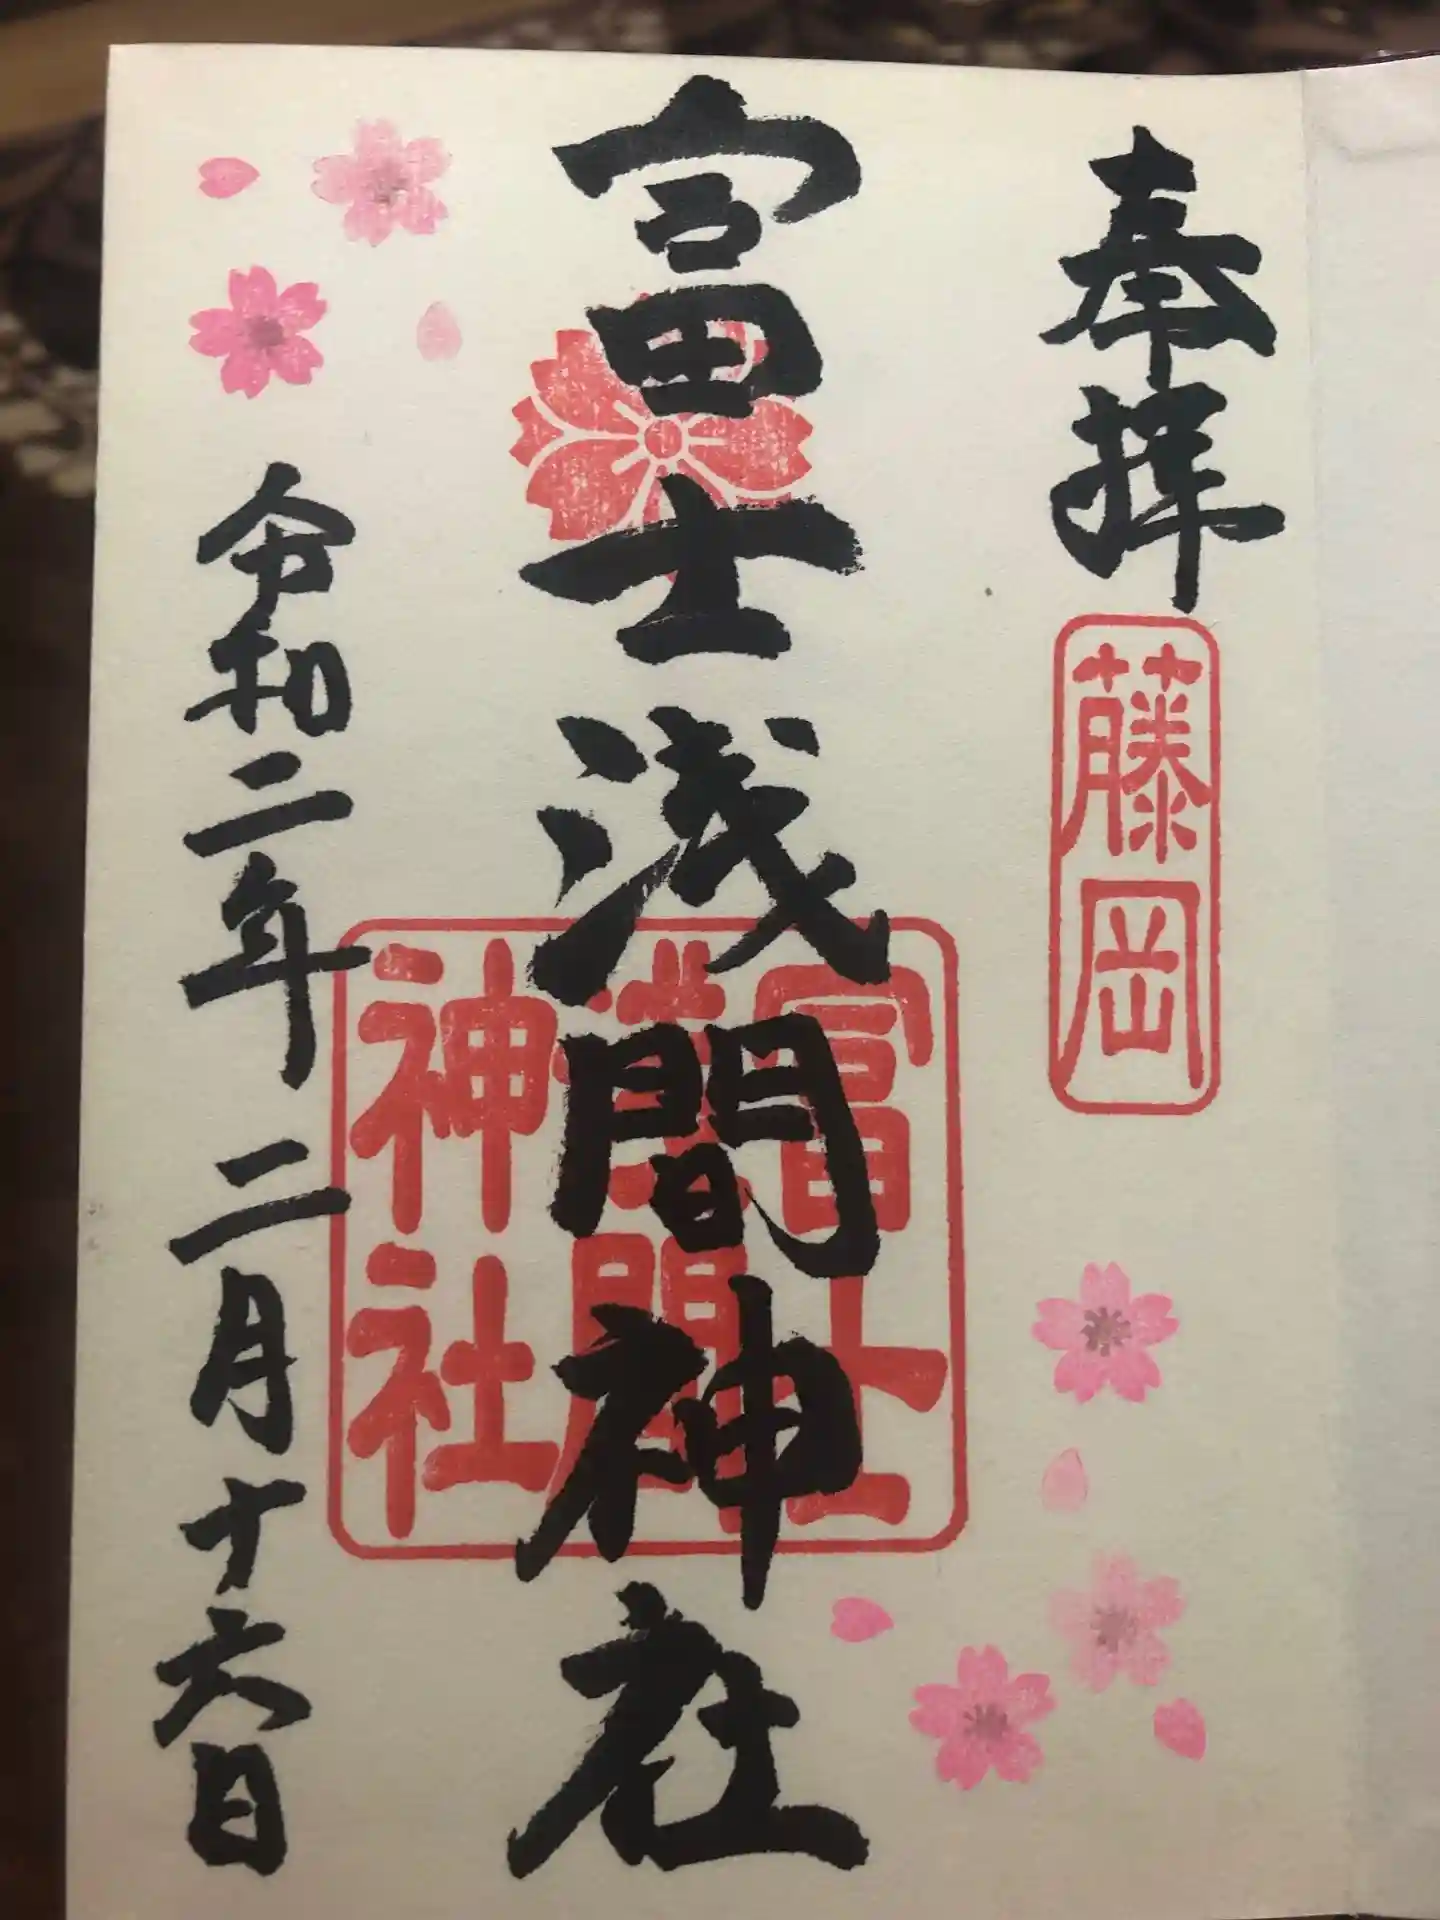 奉拝
藤岡
冨士浅間神社
冨士
浅間
神社
令和二年 二月十六日